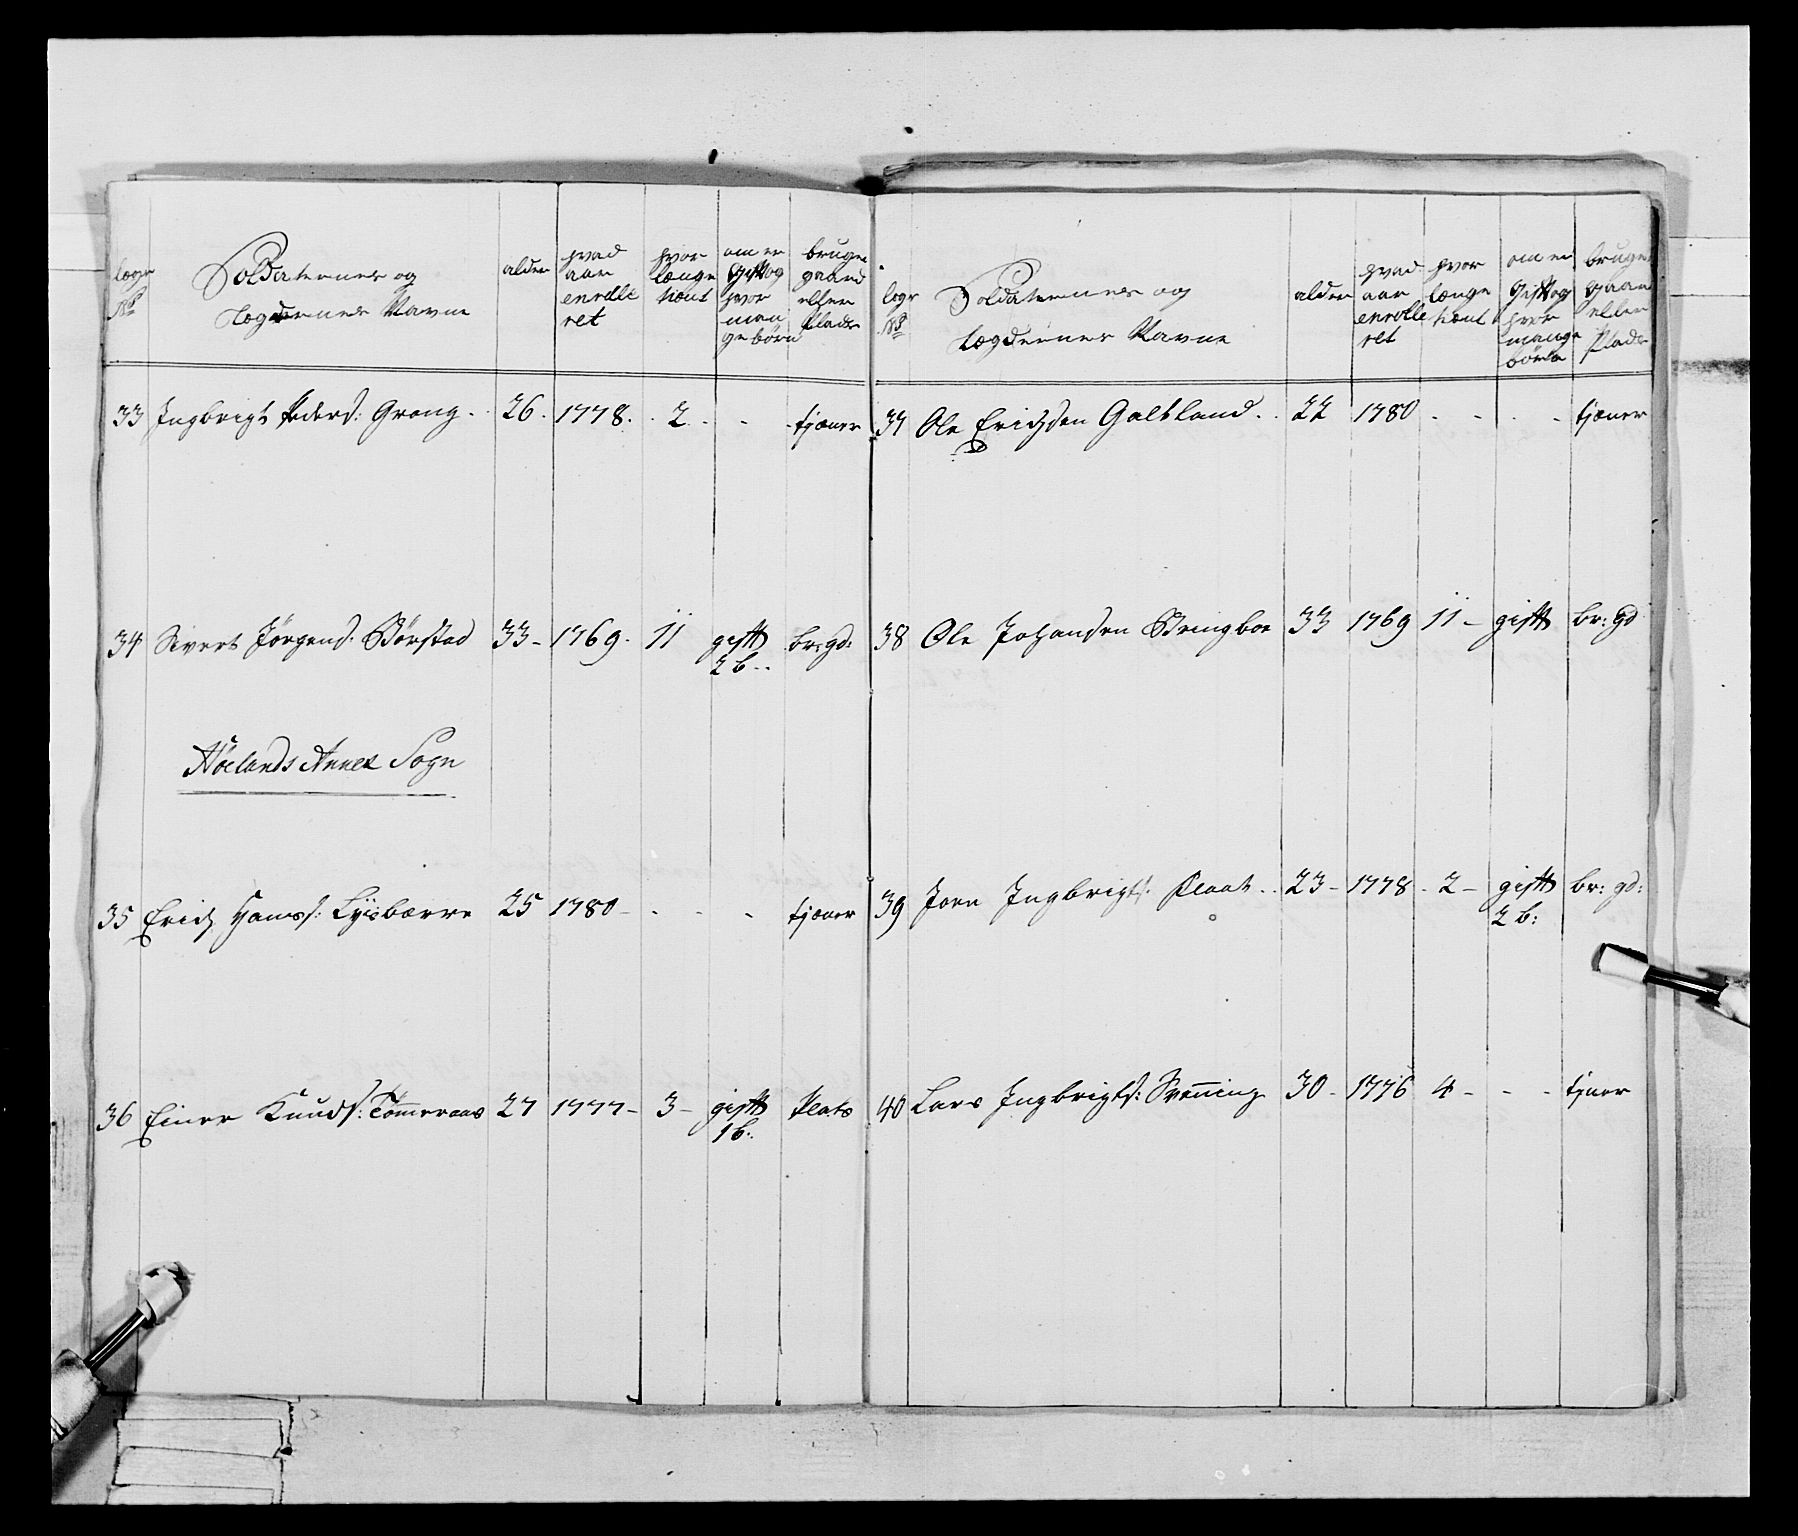 lægs No
Soldaternes og
Lægdernes Navne
alder
hvad aar enrolle ret
hvor længe tient
om er Gift og hvor man ge börn
bruger gaard eller Plads
33 Ingbrigt Peders: Grong. 26. 1778. 2. - - tjæner
34 Sivert Jörgens: Börstad 33 - 1769. 11 gift br: gd:
2 b..
Höelands Annex Sogn
35 Erich Hanss: Lysbærre 25 1780 - - - - tjæner
36 Einer Knuds: Tömeraas 27 1777 - 3 - gift Plats
1 b:
legs No
Soldaternes og
Lægdernes Navne
alder
hvad aar enrolle ret
hvor længe tient
om er Gift og hvor mange börn
bruger gaar eller Plads
37 Ole Erichsen Galtland. 22 1780 - - - - tjæner
38 Ole Johansen Bringboe 33 1769 11 - gift br: gd
39 Joen Ingbrigts: Flaat. 23 - 1778 - 2 - gift br: gd:
2 b:
40 Lars Ingbrigts: Svening 30 - 1776 4 - - - tjner